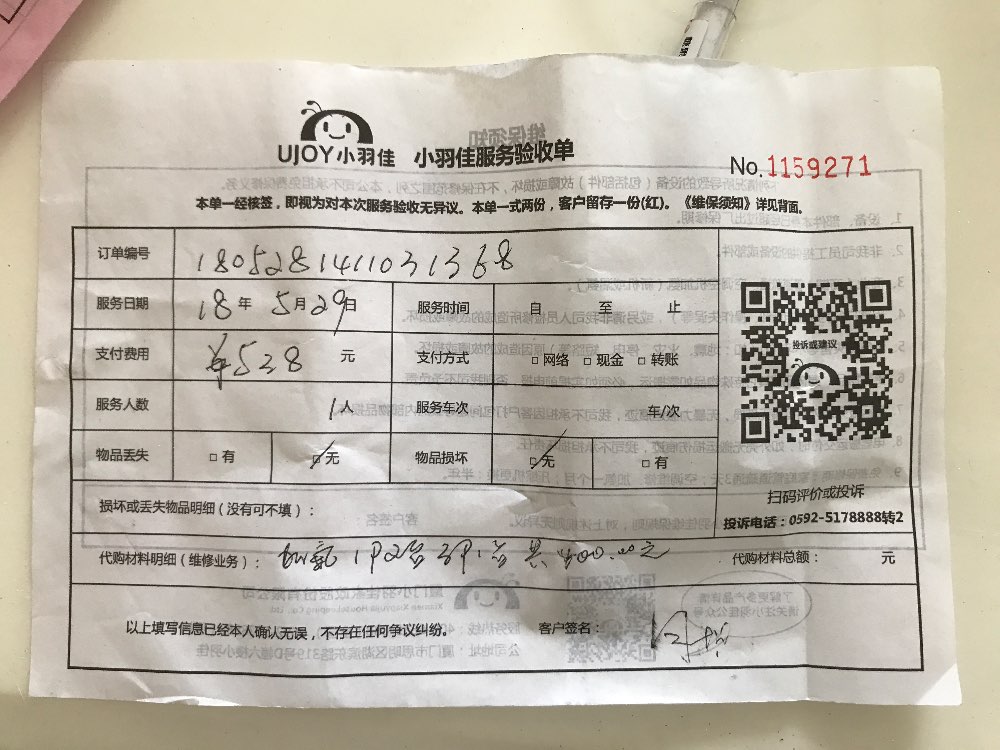 UJOY小羽佳 小羽佳服务验收单
No.1159271
本单一经核签，即视为对本次服务验收无异议。本单一式两份，客户留存一份(红)。《维保须知》详见背面。
订单编号 1805281411031368
服务日期 18年 5月29日 服务时间 自 至 止
支付费用 ¥528 元 支付方式 □网络 □现金 □转账
投诉或建议
服务人数 1人 服务车次 车/次
物品丢失 □有 □无 物品损坏 □无 □有
扫码评价或投诉
损坏或丢失物品明细（没有可不填）：
投诉电话：0592-5178888转2
代购材料明细（维修业务）： 加氟 1P2台 3P1台 共 400.00元 代购材料总额： 元
以上填写信息已经本人确认无误，不存在任何争议纠纷。 客户签名：